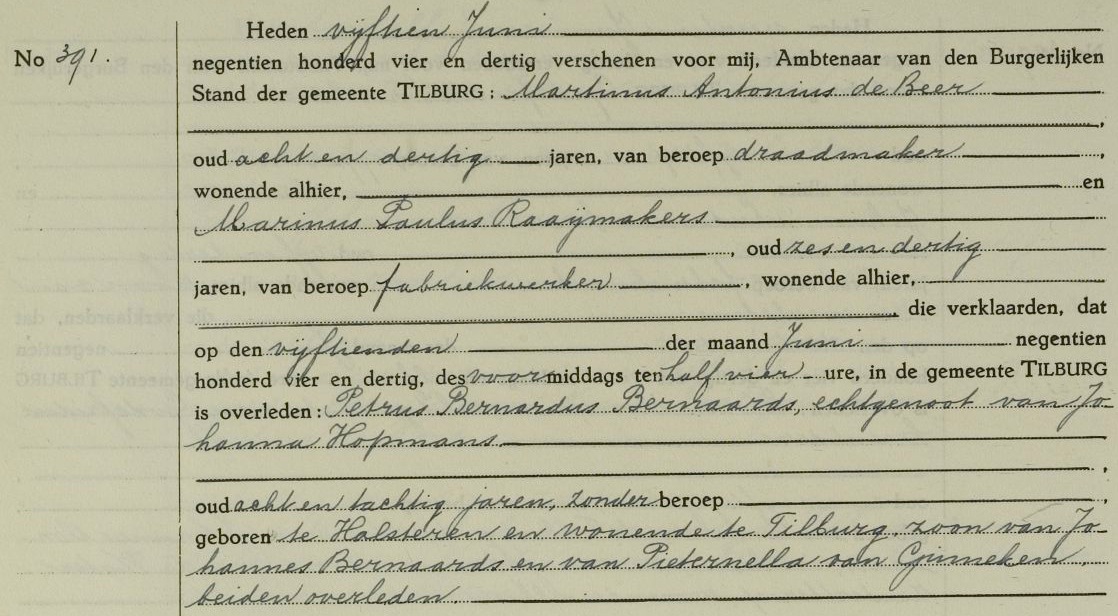 Heden vijftien Juni
No 391. negentien honderd vier en dertig verschenen voor mij, Ambtenaar van den Burgerlijken
Stand der gemeente TILBURG: Martinus Antonius de Beer
,
oud acht en dertig jaren, van beroep draadmaker ,
wonende alhier, en
Marinus Paulus Raaijmakers
, oud zes en dertig
jaren, van beroep fabriekwerker , wonende alhier,
die verklaarden, dat
op den vijftienden der maand Juni negentien
honderd vier en dertig, des voormiddags ten half vier ure, in de gemeente TILBURG
is overleden: Petrus Bernardus Bernaards, echtgenoot van Jo-
hanna Hopmans
,
oud acht en tachtig jaren, zonder beroep ,
geboren te Halsteren en wonende te Tilburg, zoon van Jo-
hannes Bernaards en van Pieternella van Ginneken,
beiden overleden.